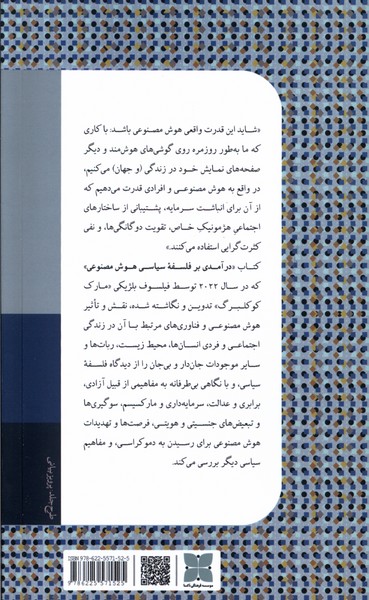 «شاید این قدرت واقعی هوش مصنوعی باشد: با کاری
که ما به‌طور روزمره روی گوشی‌های هوش‌مند و دیگر
صفحه‌های نمایش خود در زندگی (و جهان) می‌کنیم،
در واقع به هوش مصنوعی و افرادی قدرت می‌دهیم که
از آن برای انباشت سرمایه، پشتیبانی از ساختارهای
اجتماعیِ هژمونیکِ خاص، تقویت دوگانگی‌ها، و نفی
کثرت‌گرایی استفاده می‌کنند.»
کتاب «درآمدی بر فلسفهٔ سیاسی هوش مصنوعی»
که در سال ۲۰۲۲ توسط فیلسوف بلژیکی «مارک
کوکلبرگ» تدوین و نگاشته شده، نقش و تأثیر
هوش مصنوعی و فناوری‌های مرتبط با آن در زندگی
اجتماعی و فردی انسان‌ها، محیط زیست، ربات‌ها و
سایر موجودات جان‌دار و بی‌جان را از دیدگاه فلسفهٔ
سیاسی، و با نگاهی بی‌طرفانه به مفاهیمی از قبیل آزادی،
برابری و عدالت، سرمایه‌داری و مارکسیسم، سوگیری‌ها
و تبعیض‌های جنسیتی و هویتی، فرصت‌ها و تهدیدات
هوش مصنوعی برای رسیدن به دموکراسی، و مفاهیم
سیاسی دیگر بررسی می‌کند.
طرح جلد: پرویز بیانی
ISBN 978-622-5571-52-5
9 786225 571525